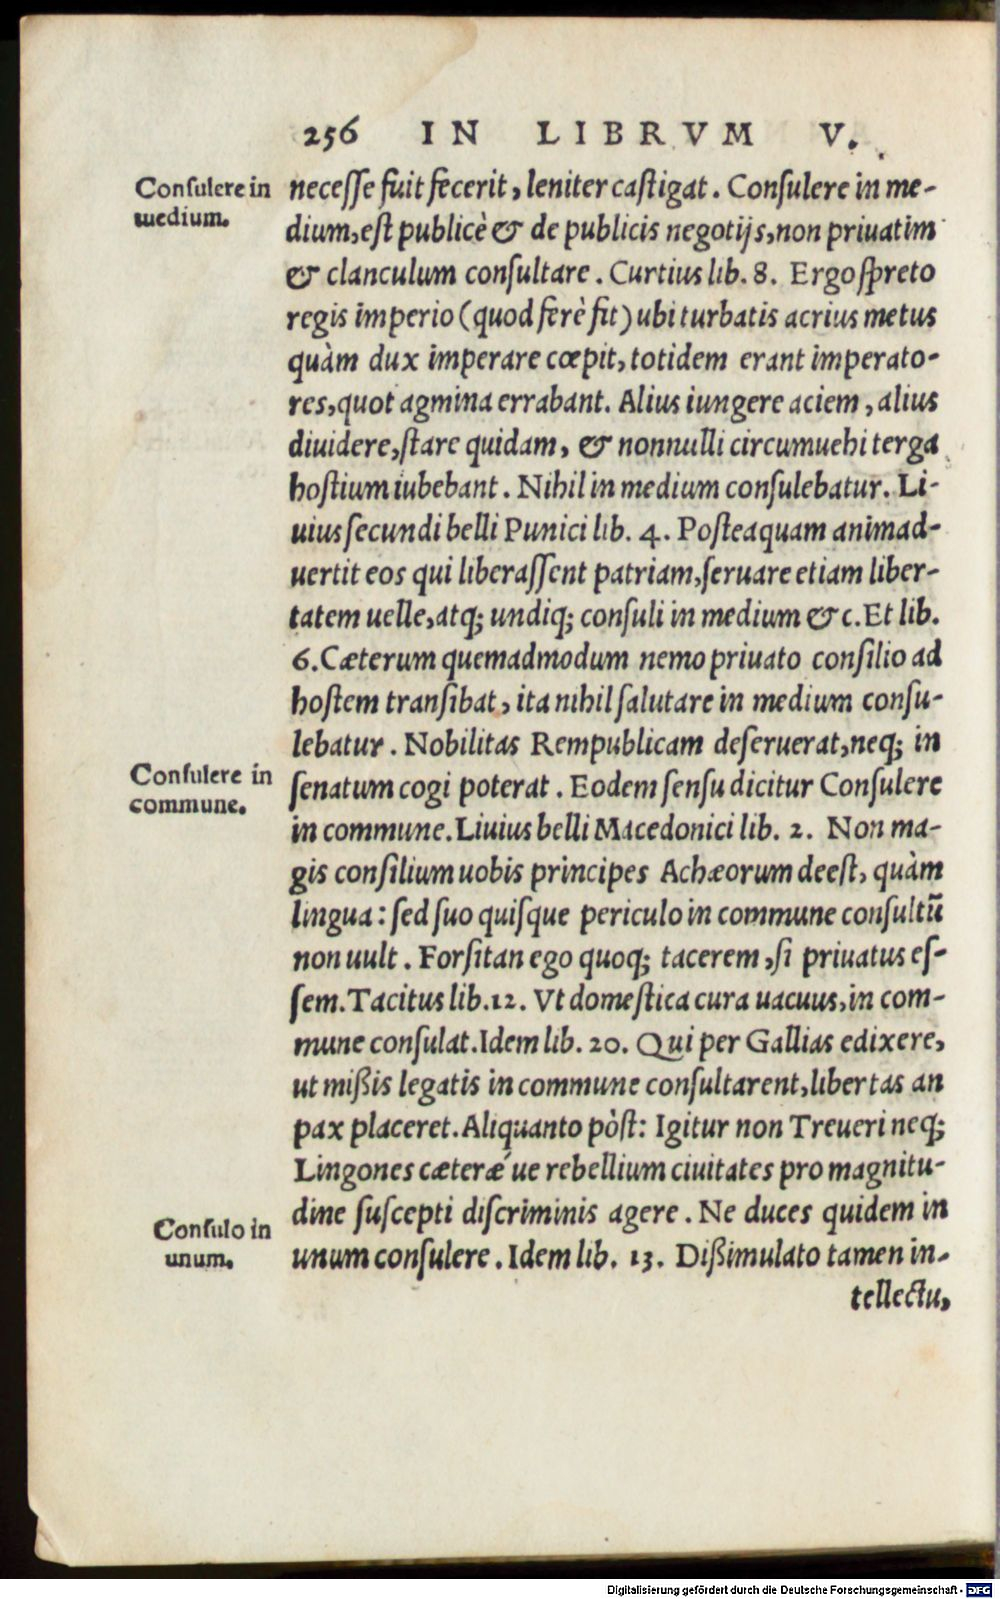 256 IN LIBRVM V.
Consulere in
medium.
necesse fuit fecerit, leniter castigat. Consulere in me-
dium, est publicè & de publicis negotijs, non priuatim
& clanculum consultare. Curtius lib. 8. Ergo spreto
regis imperio (quod ferè fit) ubi turbatis acrius metus
quàm dux imperare cœpit, totidem erant imperato-
res, quot agmina errabant. Alius iungere aciem, alius
diuidere, stare quidam, & nonnulli circumuehi terga
hostium iubebant. Nihil in medium consulebatur. Li-
uius secundi belli Punici lib. 4. Posteaquam animad-
uertit eos qui liberassent patriam, seruare etiam liber-
tatem uelle, atq; undiq; consuli in medium &c. Et lib.
6. Cæterum quemadmodum nemo priuato consilio ad
hostem transibat, ita nihil salutare in medium consu-
lebatur. Nobilitas Rempublicam deseruerat, neq; in
Consulere in
commune.
senatum cogi poterat. Eodem sensu dicitur Consulere
in commune. Liuius belli Macedonici lib. 2. Non ma-
gis consilium uobis principes Achæorum deest, quàm
lingua: sed suo quisque periculo in commune consultū
non uult. Forsitan ego quoq; tacerem, si priuatus es-
sem. Tacitus lib. 12. Vt domestica cura uacuus, in com-
mune consulat. Idem lib. 20. Qui per Gallias edixere,
ut mißis legatis in commune consultarent, libertas an
pax placeret. Aliquanto pòst: Igitur non Treueri neq;
Lingones cæteræ´ue rebellium ciuitates pro magnitu-
dine suscepti discriminis agere. Ne duces quidem in
Consulo in
unum.
unum consulere. Idem lib. 13. Dißimulato tamen in-
tellectu,
Digitalisierung gefördert durch die Deutsche Forschungsgemeinschaft - DFG